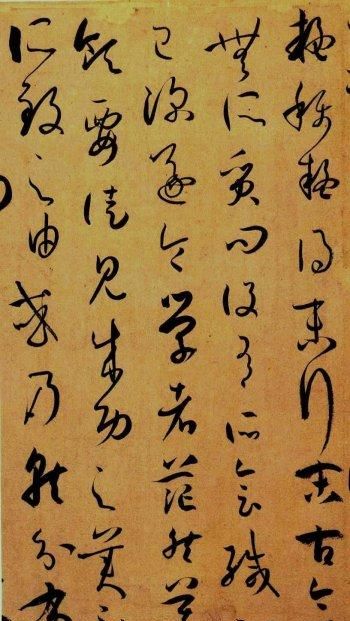 疑稱疑得末行末古今
無所質問設有所會緘
已深遂令學者茫然莫
領要徒見成功之美不
所致之由或乃就分布